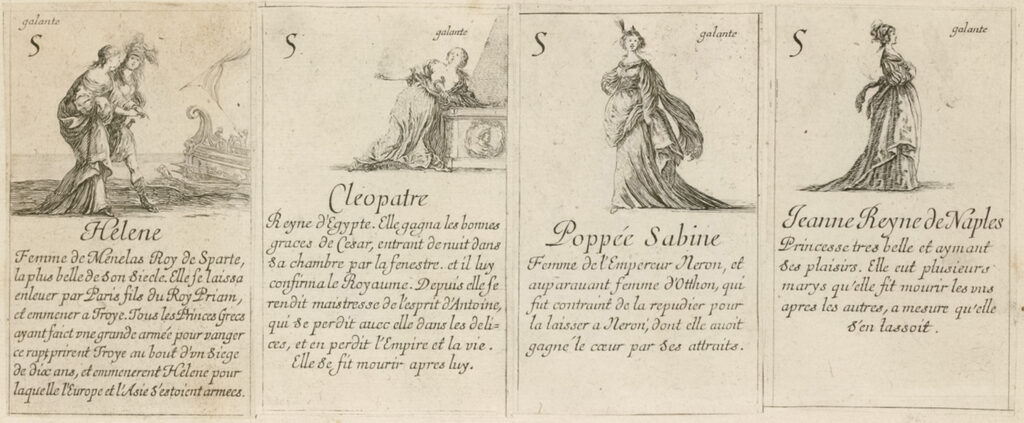 galante
S
Hélene
Femme de Ménelas Roy de Sparte,
la plus belle de son siecle. Elle se laissa
enleuer par Paris fils du Roy Priam,
et emmener a Troye. Tous les Princes Grecs
ayant faict vne grande armée pour vanger
ce rapt prirent Troye au bout d'vn siege
de dix ans, et emmenerent Hélene pour
laquelle l'Europe et l'Asie s'estoient armees.
galante
S
Cleopatre
Reyne d'Egypte. Elle gagna les bonnes
graces de Cesar, entrant de nuit dans
sa chambre par la fenestre. et il luy
confirma le Royaume. Depuis elle se
rendit maistresse de l'esprit d'Antoine,
qui se perdit auec elle dans les deli-
ces, et en perdit l'Empire et la vie.
Elle se fit mourir apres luy.
galante
S
Poppée Sabine
Femme de l'Empereur Neron, et
auparauant femme d'Otthon, qui
fut contraint de la repudier pour
la laisser a Neron, dont elle auoit
gagné le cœur par ses attraits.
galante
S
Jeanne Reyne de Naples
Princesse tres belle et aymant
ses plaisirs. Elle eut plusieurs
marys qu'elle fit mourir les vns
apres les autres, a mesure qu'elle
s'en lassoit.